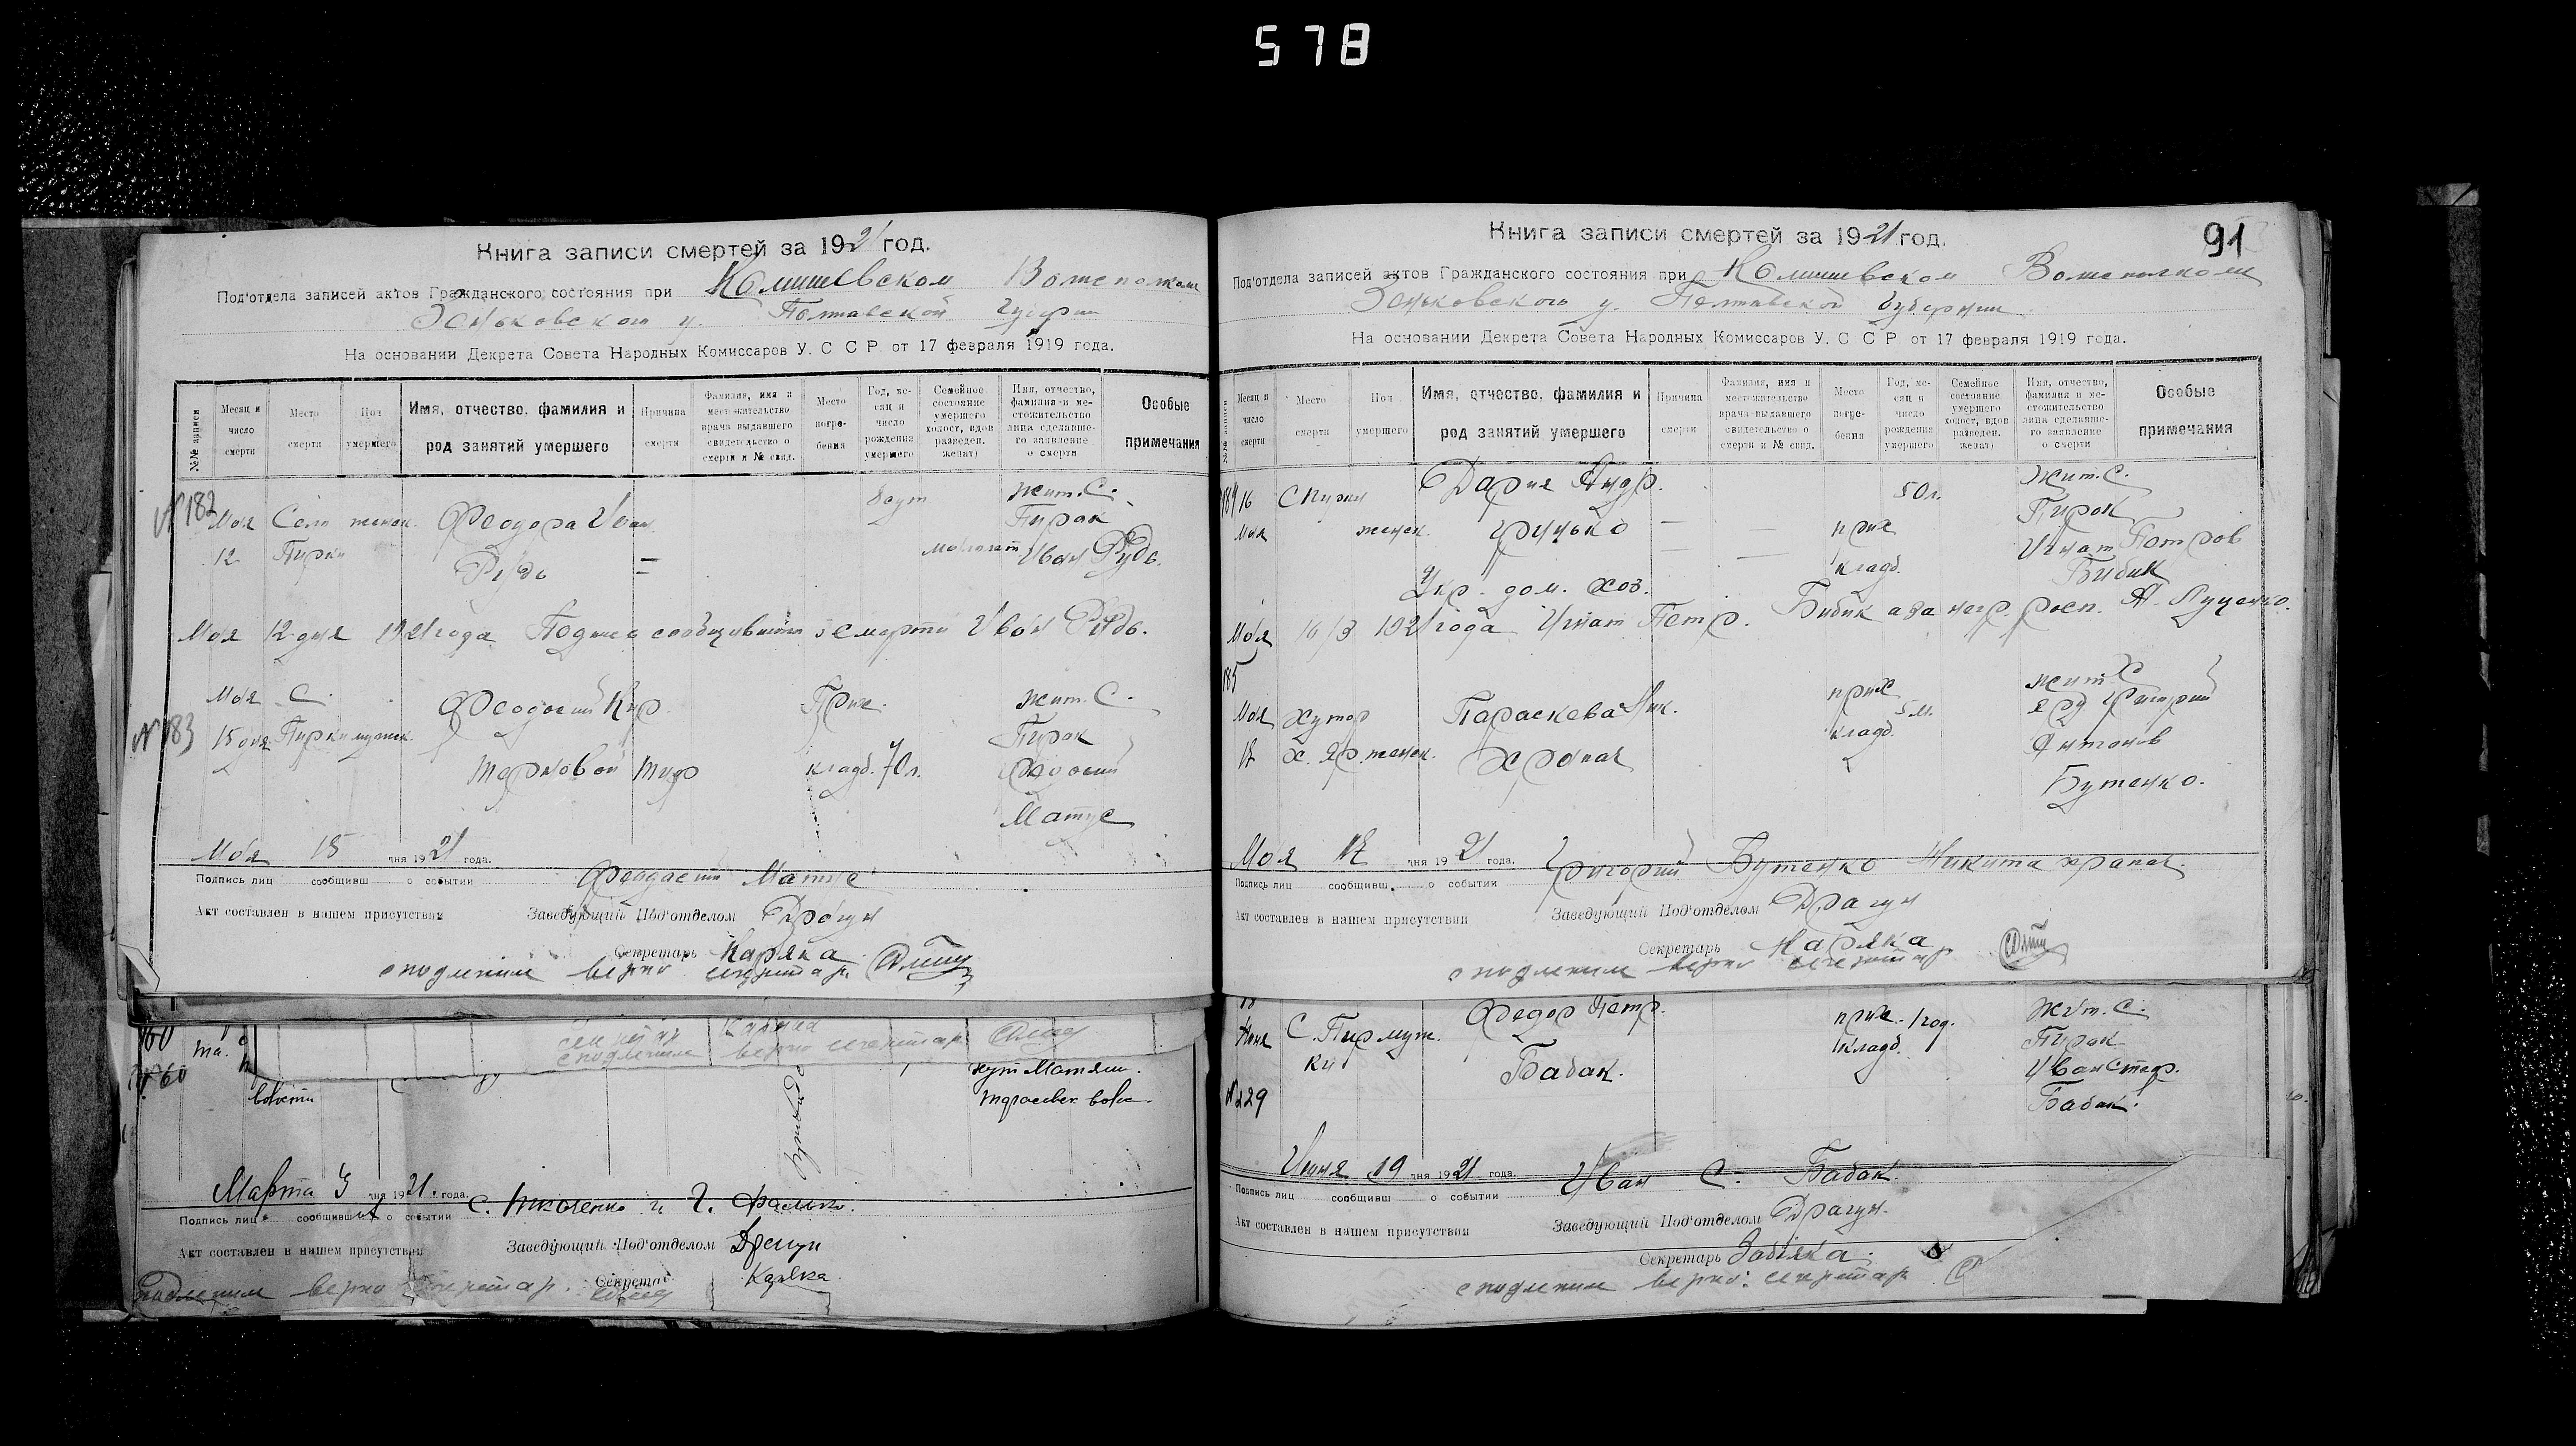 578
Книга записи смертей за 1921 год.
Под'отдела записей актов Гражданского состояния при Комишевском
Зеньковского у. Полтавской
На основании Декрета Совета Народных Комиссаров У. С С Р. от 17 февраля 1919 года.
№№ записи
Месяц и число смерти
Место смерти
Пол умершего
Имя, отчество, фамилия и род занятий умершего
Причина смерти
Фамилия, имя и местожительство врача выдавшего свидетельство о смерти и № свид.
Место погребения
Год, месяц и число рождения умершего
Семейное состояние умершего холост, вдов разведен. женат)
Имя, отчество, фамилия и местожительство лица сделавшего заявление о смерти
Особые примечания
№ 182
Мая 12
Село Пирки
женск.
Феодора Иван.
Рудь
Жит. С.
Пирок
Иван Рудь.
Мая 12 дня 1921 года Иван Рудь.
№ 183
Мая 15 дня
С. Пирки
мужск.
Феодосий Кир.
Терновой
тиф
Прих.
кладб.
70 л.
жит. С.
Пирок
Феодосий
Матус
Мая 15 дня 1921 года.
Подпись лиц сообщивш о событии Феодосий Матус
Акт составлен в нашем присутствии Заведующий Под'отделом Драгун
Секретарь Каряка
с подлинным верно секретар
верно секретар
хут Матяш.
Марта 3 дня 1921 года.
Подпись лиц сообщивш о событии С.
Акт составлен в нашем присутствии Заведующий Под'отделом Драгун
Секретар Каряка
подлинным верно секретар.
91
Книга записи смертей за 1921 год.
Под'отдела записей актов Гражданского состояния при Комишевском
Зеньковского у. Полтавской губернии
На основании Декрета Совета Народных Комиссаров У. С С Р от 17 февраля 1919 года.
№№ записи
Месяц и число смерти
Место смерти
Пол умершего
Имя, отчество, фамилия и род занятий умершего
Причина смерти
Фамилия, имя и местожительство врача выдавшего свидетельство о смерти и № свид.
Место погребения
Год, месяц и число рождения умершего
Семейное состояние умершего холост, вдов разведен. женат)
Имя, отчество, фамилия и местожительство лица сделавшего заявление о смерти
Особые примечания
184
16 Мая
женск.
Дария Андр.
Гринько
Укр. дом. хоз.
прих
кладб.
50 л.
Жит. С.
Пирок
Игнат Петров
Бибик
Мая 16/3 1921 года Игнат Петр. Бибик а за негр. росп. А. Луценко.
185
Мая
хутор
х. Яр. женск.
Параскева Ник.
Храпач
прих
кладб.
5 м.
жит Х
Яр Григорий
Антонов
Бутенко.
Мая дня 1921 года. Григорий Бутенко Никита Храпач.
Подпись лиц сообщивш. о событии
Акт составлен в нашем присутствии Заведующий Под'отделом Драгун
Секретарь Каряка
с подлинным верно секретар
Июня
С. Пирки
муж.
№ 229
Федор Петр.
Бабак.
прих.
кладб.
1 год.
Жит. С.
Пирок
Иван Стеф.
Бабак.
Июня 19 дня 1921 года. Иван С. Бабак.
Подпись лиц сообщивш о событии
Акт составлен в нашем присутствии Заведующий Под'отделом Драгун.
Секретарь Забіяка.
с подлинным верно: секретар